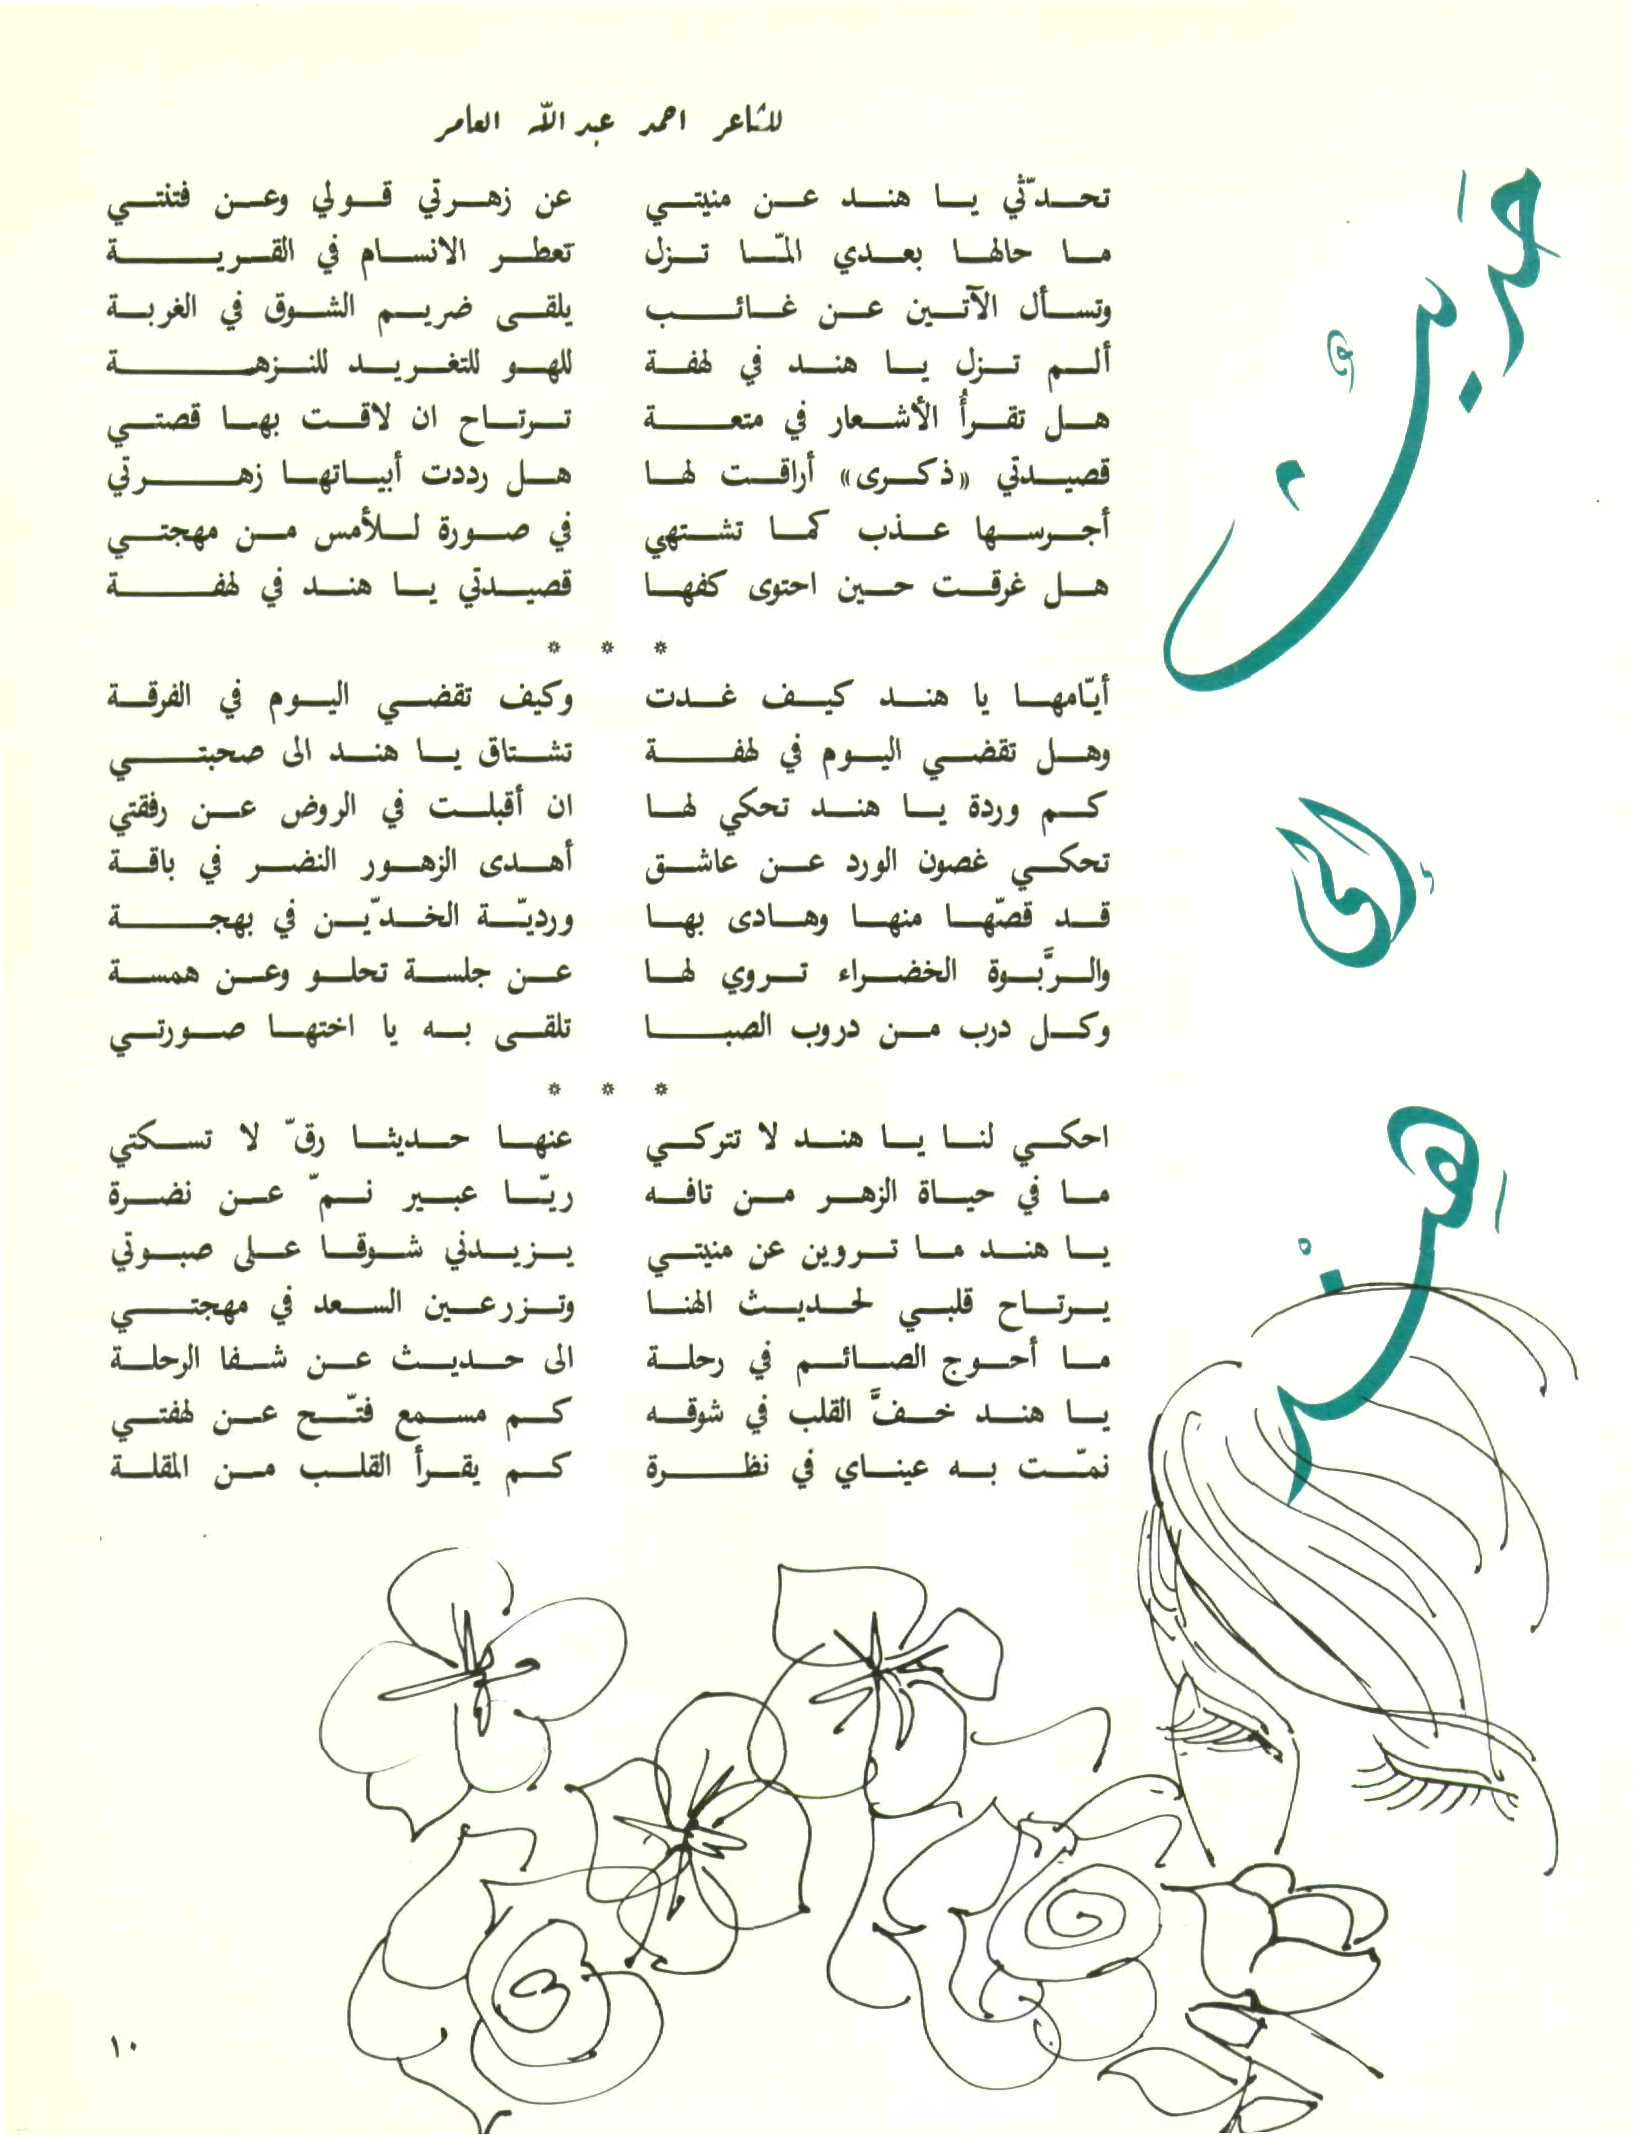 حديث إلى هند
للشاعر احمد عبد الله العامر
تحدّثي يا هند عن منيتي عن زهرتي قولي وعن فتنتي
ما حالها بعدي المّا تزل تعطر الانسام في القرية
وتسأل الآتين عن غائب يلقى ضريم الشوق في الغربة
ألم تزل يا هند في لهفة للهو للتغريد للنزهة
هل تقرأُ الأشعار في متعة ترتاح ان لاقت بها قصتي
قصيدتي «ذكرى» أراقت لها هل رددت أبياتها زهرتي
أجرسها عذب كما تشتهي في صورة للأمس من مهجتي
هل غرقت حين احتوى كفها قصيدتي يا هند في لهفة
* * *
أيّامها يا هند كيف غدت وكيف تقضي اليوم في الفرقة
وهل تقضي اليوم في لهفة تشتاق يا هند الى صحبتي
كم وردة يا هند تحكي لها ان أقبلت في الروض عن رفقتي
تحكي غصون الورد عن عاشق أهدى الزهور النضر في باقة
قد قصّها منها وهادى بها ورديّة الخدّين في بهجة
والرَّبوة الخضراء تروي لها عن جلسة تحلو وعن همسة
وكل درب من دروب الصبا تلقى به يا اختها صورتي
* * *
احكي لنا يا هند لا تتركي عنها حديثا رقّ لا تسكتي
ما في حياة الزهر من تافه ريّا عبير نمّ عن نضرة
يا هند ما تروين عن منيتي يزيدني شوقا على صبوتي
يرتاح قلبي لحديث الهنا وتزرعين السعد في مهجتي
ما أحوج الصائم في رحلة الى حديث عن شفا الرحلة
يا هند خفَّ القلب في شوقه كم مسمع فتّح عن لهفتي
نمّت به عيناي في نظرة كم يقرأ القلب من المقلة
١٠